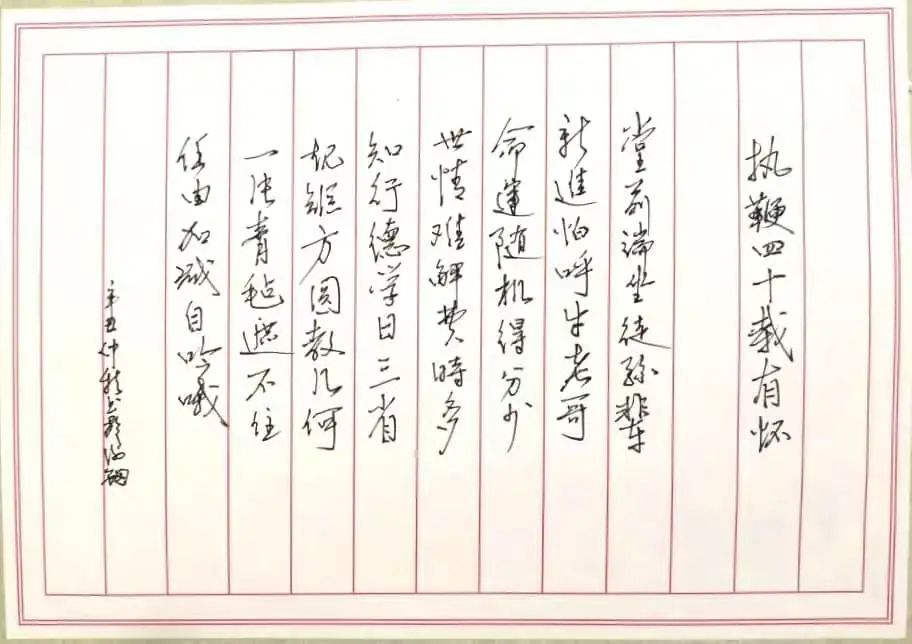 执鞭四十载有怀
堂前端坐徒孙辈
新進怕呼牛老哥
命運随机得分少
世情难解费時多
知行德学日三省
规矩方圆教几何
一袭青毡遮不住
任由加减自吟哦
辛丑仲秋